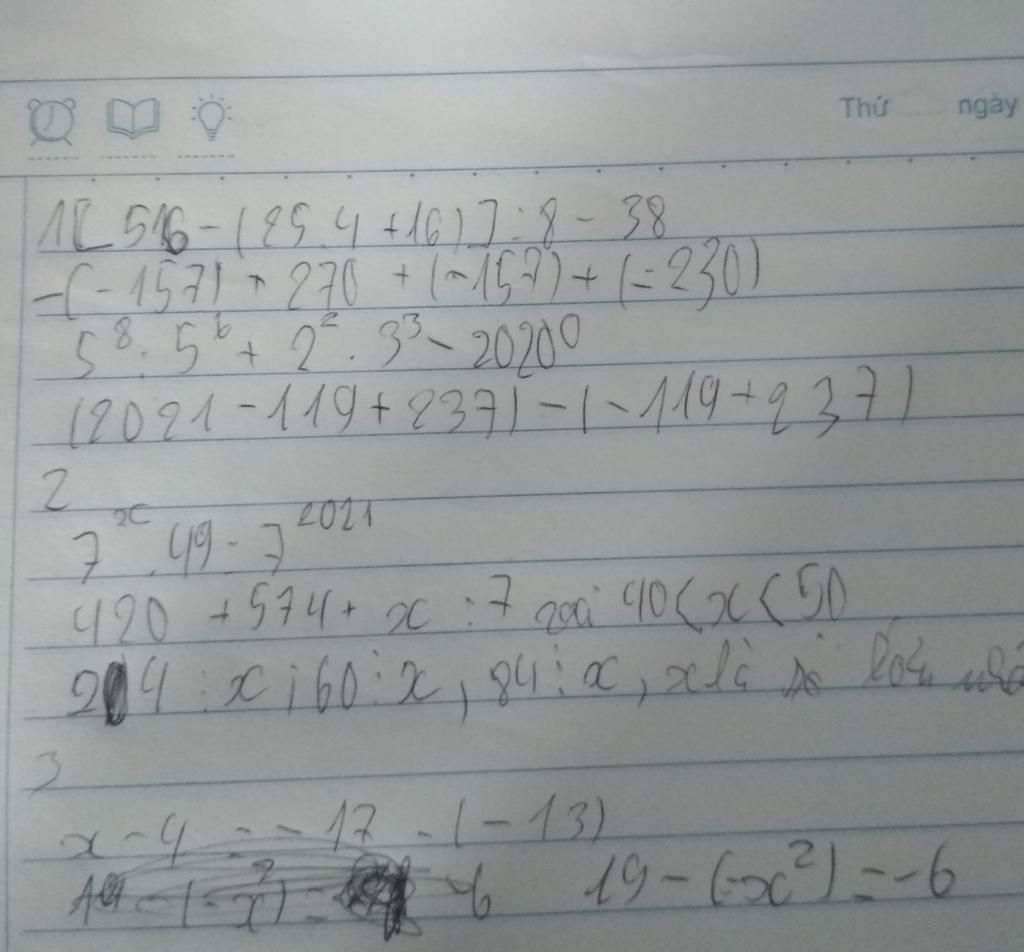 Thứ ngày
1[ 516 - (25.4 + 16)] : 8 - 38
-(-157) + 270 + (-157) + (-230)
5⁸ : 5⁶ + 2² . 3³ - 2020⁰
(2021 - 119 + 237) - (-119 + 237)
2
7ˣ . 49 = 7²⁰²¹
420 + 574 + x : 7 40 < x < 50
24 : x ; 60 : x , 84 : x , x là số lớn
3
x - 4 = - 17 - (-13)
-6 19 - (-x²) = -6